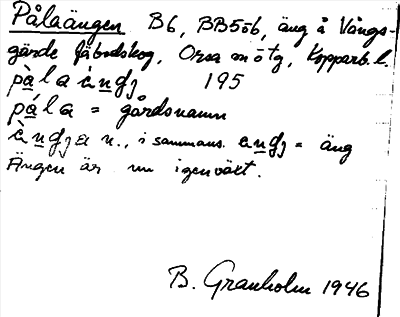 Pålaängen B6, BB5öb, äng å Vångs-
gärde fäbodskog, Orsa m ō tg, Kopparb. l.
på̀la ä̀ngj 195
pǻla = gårdsnamn
ä̀ngja n., i sammans. ängj = äng
Ängen är nu igenväxt.
B. Granholm 1946